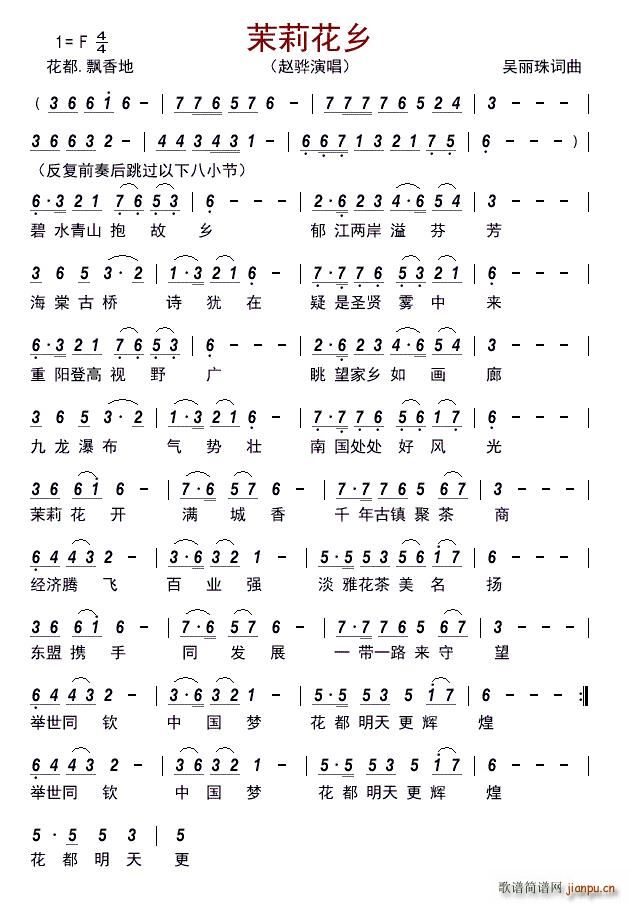 茉莉花乡
1= F 4/4
花都.飘香地 （赵骅演唱） 吴丽珠词曲
( 3 6 6 1 6 - | 7 7 6 5 7 6 - | 7 7 7 7 6 5 2 4 | 3 - - - |
3 6 6 3 2 - | 4 4 3 4 3 1 - | 6 6 7 1 3 2 1 7 5 | 6 - - ) |
（反复前奏后跳过以下八小节）
6·3 2 1 7 6 5 3 | 6 - - - | 2·6 2 3 4·6 5 4 | 3 - - - |
碧 水青山 抱 故 乡 郁 江两岸 溢 芬 芳
3 6 5 3·2 | 1·3 2 1 6 - | 7·7 7 6 5 3 2 1 | 6 - - - |
海 棠 古 桥 诗 犹 在 疑 是圣贤 雾 中 来
6·3 2 1 7 6 5 3 | 6 - - - | 2·6 2 3 4·6 5 4 | 3 - - - |
重 阳登高 视 野 广 眺 望家乡 如 画 廊
3 6 5 3·2 | 1·3 2 1 6 - | 7·7 7 6 5 6 1 7 | 6 - - - |
九 龙 瀑 布 气 势 壮 南 国处处 好 风 光
3 6 6 1 6 - | 7·6 5 7 6 - | 7·7 7 6 5 6 7 | 3 - - - |
茉莉 花 开 满 城 香 千 年古镇 聚 茶 商
6 4 4 3 2 - | 3·3 6 3 2 1 - | 5·5 5 3 5 6 1 7 | 6 - - - |
经济腾 飞 百 业 强 淡 雅花茶 美 名 扬
3 6 6 1 6 - | 7·6 5 7 6 - | 7·7 7 6 5 6 7 | 3 - - - |
东盟 携 手 同 发 展 一 带一路 来 守 望
6 4 4 3 2 - | 3·3 6 3 2 1 - | 5·5 5 3 5 1 7 | 6 - - :‖
举世同 钦 中 国 梦 花 都 明天 更 辉 煌
6 4 4 3 2 - | 3·3 6 3 2 1 - | 5·5 5 3 5 1 7 | 6 - - - |
举世同 钦 中 国 梦 花 都 明天 更 辉 煌
5·5 5 3 | 5
花 都 明 天 更
歌谱简谱网
jianpu.cn